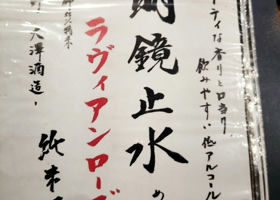 ティな香りと口当り
飲みやすい低アルコール
明鏡止水
ラヴィアンローズ
大澤酒造
純米